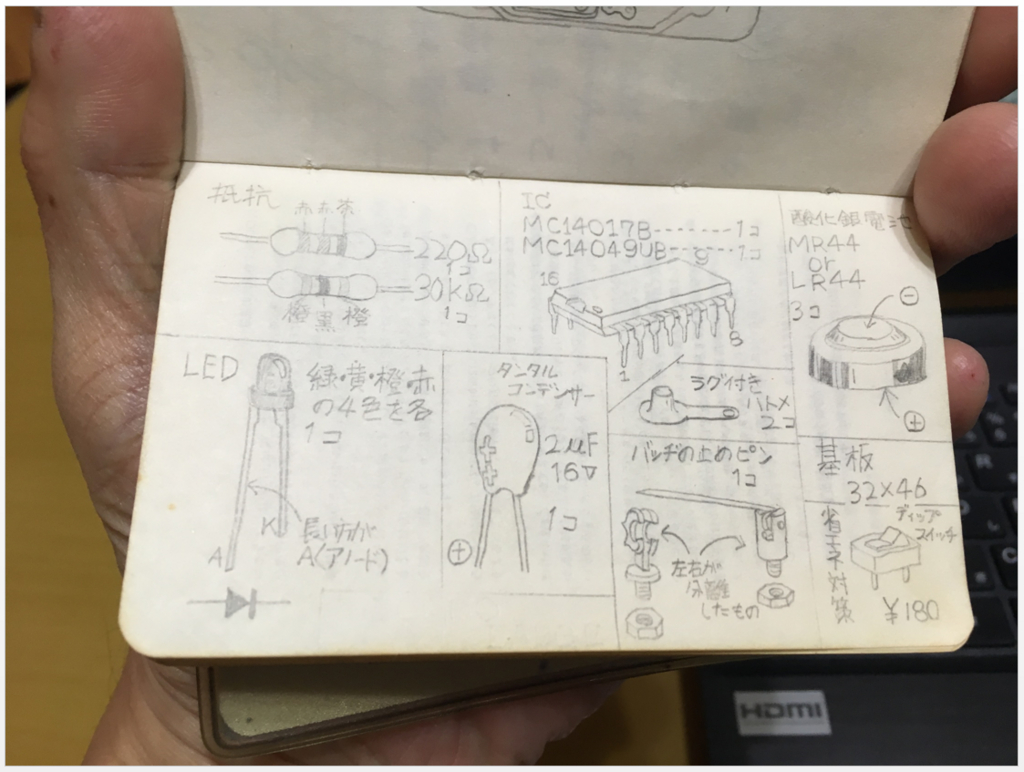 抵抗
赤赤茶
220Ω
1コ
30KΩ
1コ
橙黒橙
IC
MC14017B-------1コ
MC14049UB------1コ
16
9
8
1
酸化銀電池
MR44
or
LR44
3コ
⊖
⊕
LED
緑・黄・橙・赤
の4色を各
1コ
K
A
長い方が
A(アノード)
タンタル
コンデンサー
2μF
16V
1コ
⊕
ラグ付き
ハトメ
2コ
バッヂの止めピン
1コ
左右が
分離
したもの
基板
32×46
省エネ対策
ディップ
スイッチ
¥180
HDMI